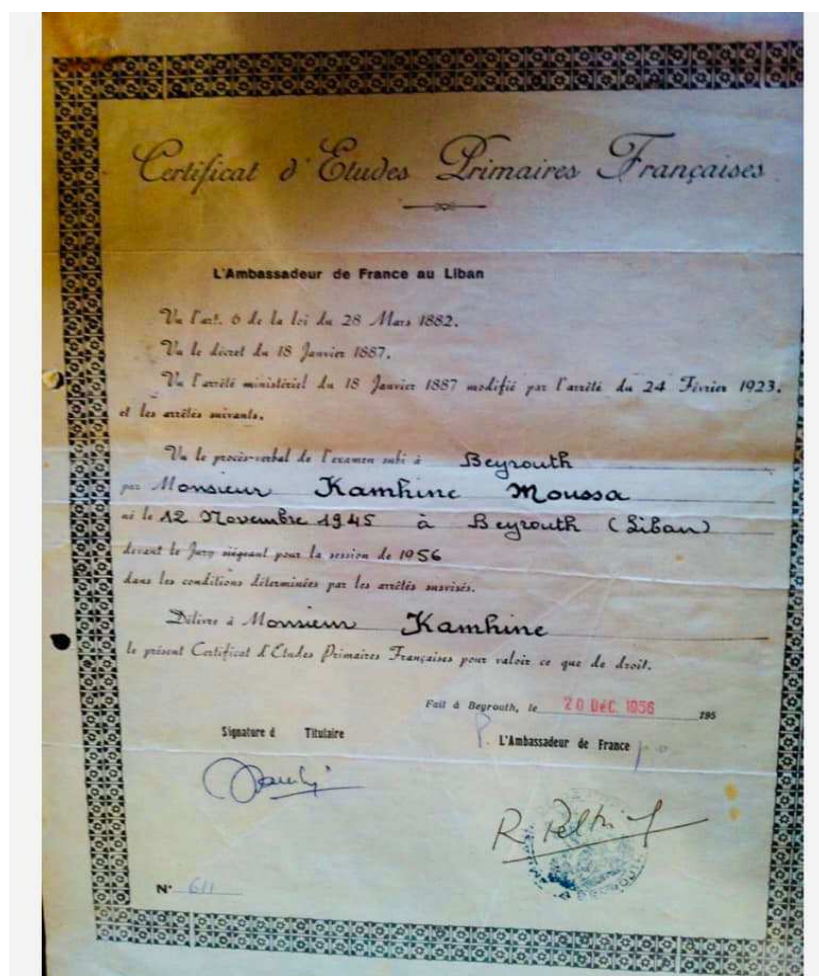 Certificat d'Etudes Primaires Françaises
L'Ambassadeur de France au Liban
Vu l'art. 6 de la loi du 28 Mars 1882.
Vu le décret du 18 Janvier 1887.
Vu l'arrêté ministériel du 18 Janvier 1887 modifié par l'arrêté du 24 Février 1923.
et les arrêtés suivants.
Vu le procès-verbal de l'examen subi à Beyrouth
par Monsieur Kamhine Moussa
né le 12 Novembre 1945 à Beyrouth (Liban)
devant le Jury siégeant pour la session de 1956
dans les conditions déterminées par les arrêtés susvisés.
Délivre à Monsieur Kamhine
le présent Certificat d'Etudes Primaires Françaises pour valoir ce que de droit.
Fait à Beyrouth, le 20 DÉC. 1956 195
Signature d Titulaire
P. L'Ambassadeur de France
N° 611